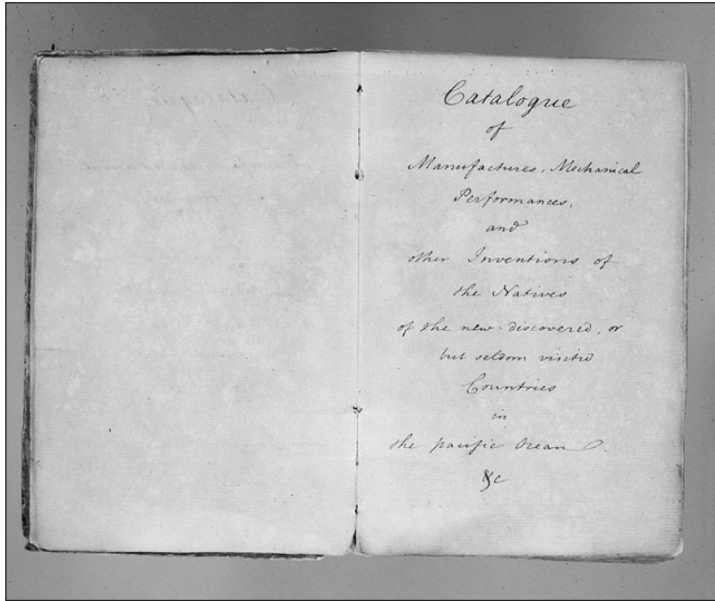 Catalogue
of
Manufactures, Mechanical
Performances,
and
other Inventions of
the Natives
of the new-discovered, or
but seldom visited
Countries
in
the pacific Ocean
&c